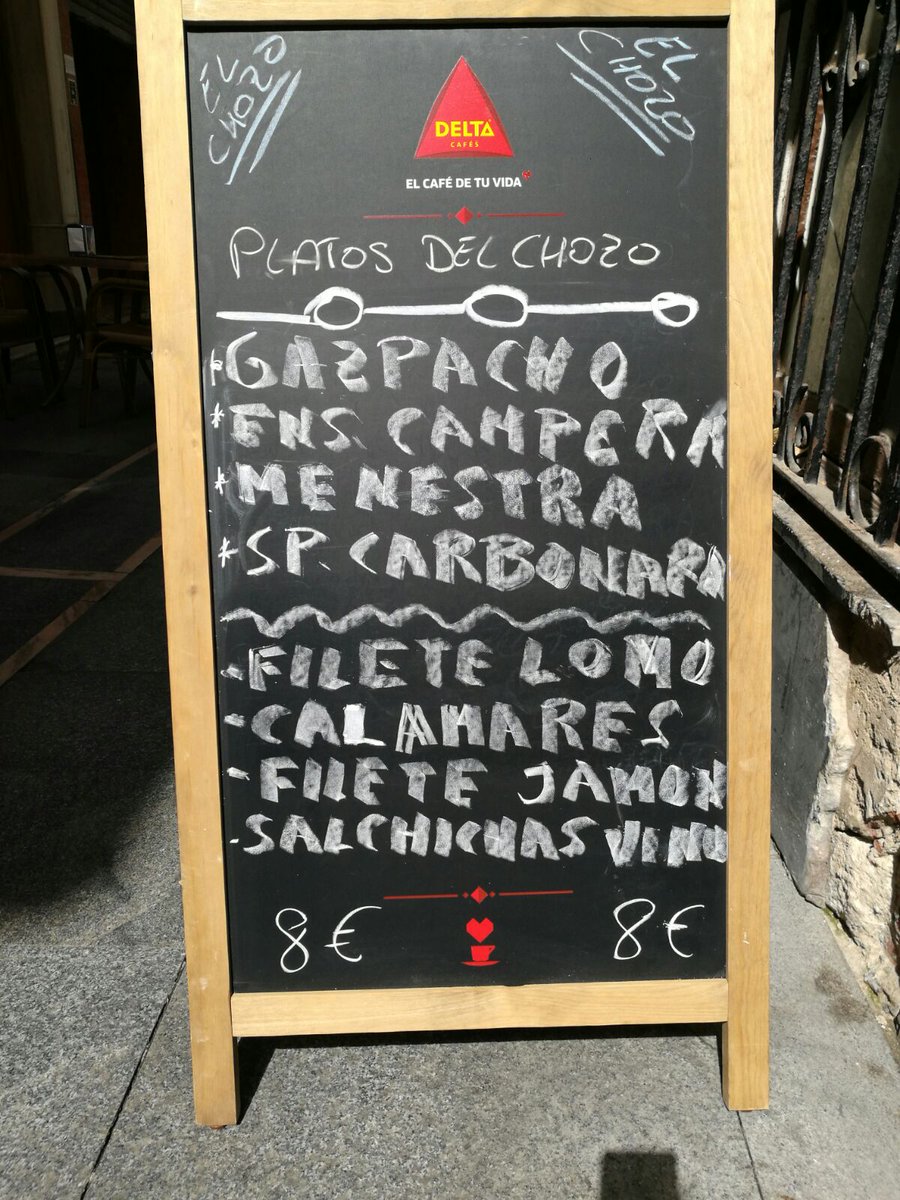 EL
CHOZO
EL
CHOZO
DELTA
CAFÉS
EL CAFÉ DE TU VIDA
PLATOS DEL CHOZO
* GAZPACHO
* ENS. CAMPERA
* MENESTRA
* SP. CARBONARA
- FILETE LOMO
- CALAMARES
- FILETE JAMON
- SALCHICHAS VINO
8€ 8€